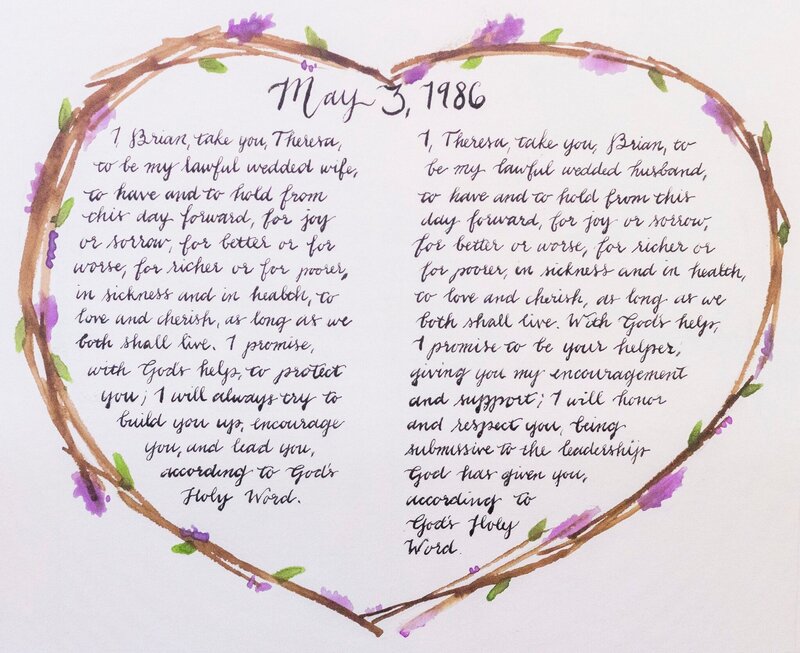 May 3, 1986
I, Brian, take you, Theresa,
to be my lawful wedded wife,
to have and to hold from
this day forward, for joy
or sorrow, for better or for
worse, for richer or for poorer,
in sickness and in health, to
love and cherish, as long as we
both shall live. I promise,
with God's help, to protect
you; I will always try to
build you up, encourage
you, and lead you,
according to God's
Holy Word.
I, Theresa, take you, Brian, to
be my lawful wedded husband,
to have and to hold from this
day forward, for joy or sorrow,
for better or worse, for richer or
for poorer, in sickness and in health,
to love and cherish, as long as we
both shall live. With God's help,
I promise to be your helper,
giving you my encouragement
and support; I will honor
and respect you, being
submissive to the leadership
God has given you,
according to
God's Holy
Word.